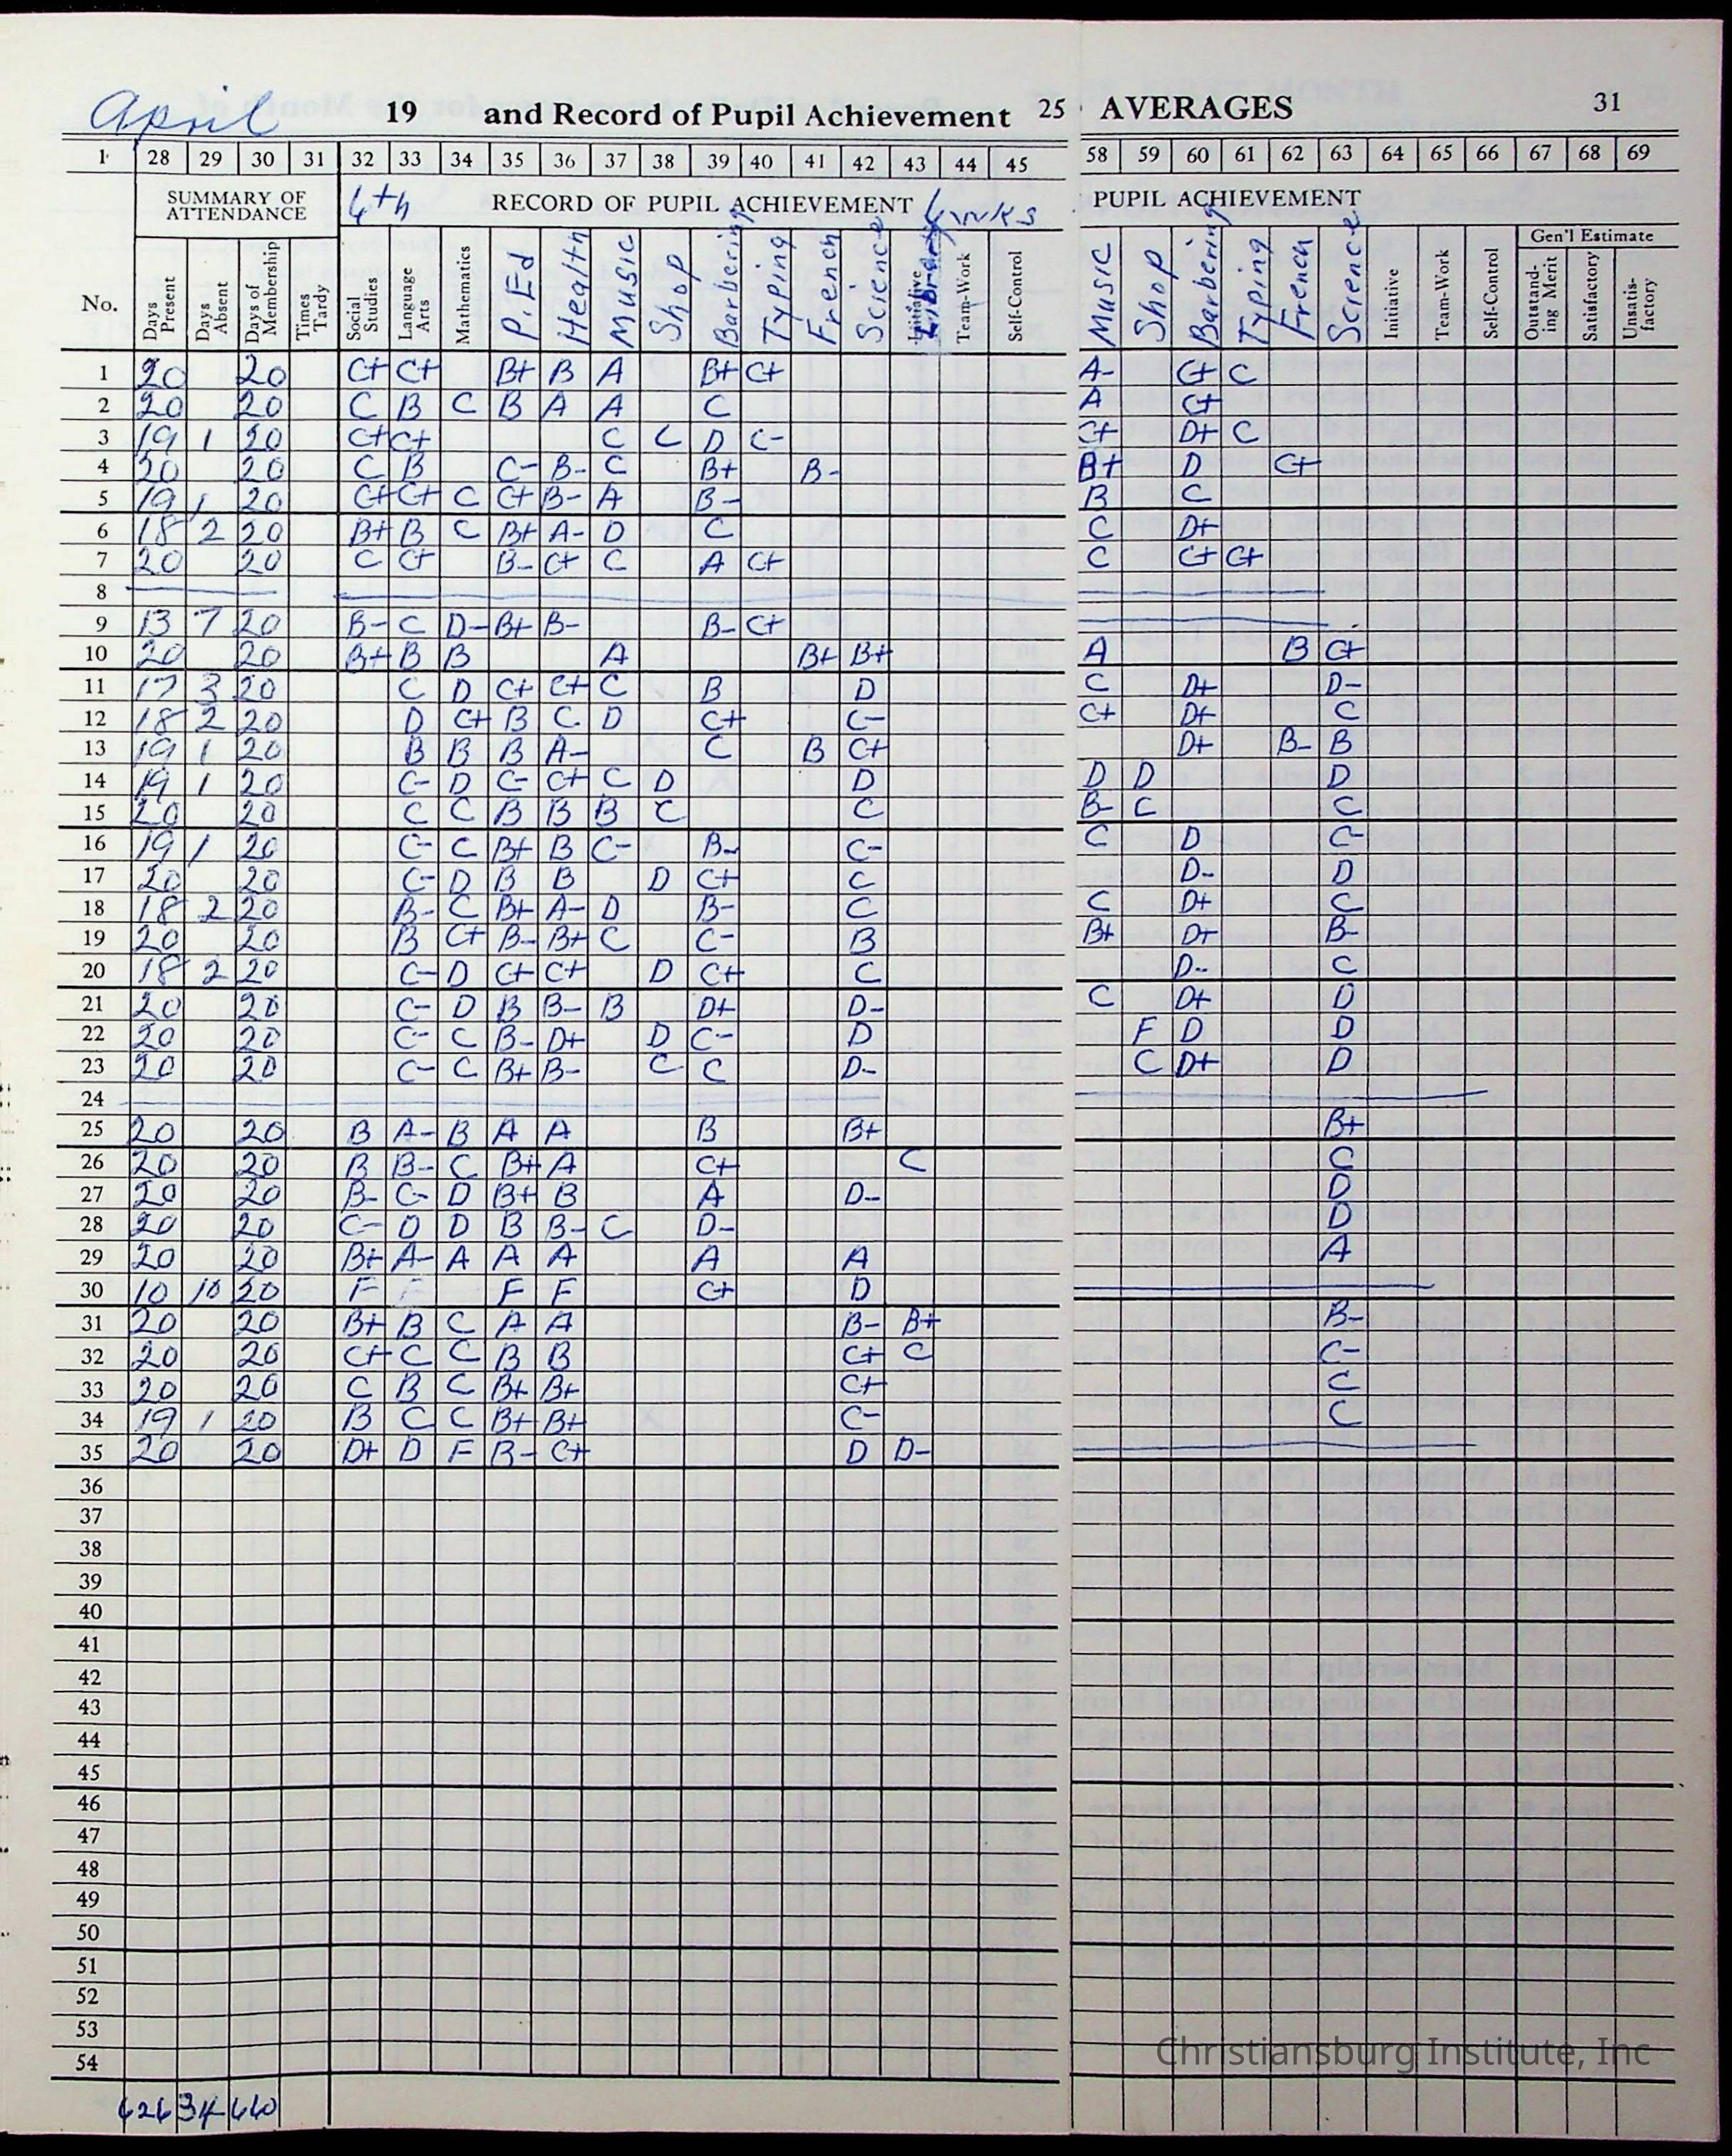 April 19 and Record of Pupil Achievement 25 AVERAGES 31
1 28 29 30 31 32 33 34 35 36 37 38 39 40 41 42 43 44 45 58 59 60 61 62 63 64 65 66 67 68 69
SUMMARY OF ATTENDANCE 6th RECORD OF PUPIL ACHIEVEMENT 6 wks PUPIL ACHIEVEMENT
Gen'l Estimate
No. Days Present Days Absent Days of Membership Times Tardy Social Studies Language Arts Mathematics P.Ed Health Music Shop Barbering Typing French Science Initiative Library Team-Work Self-Control Music Shop Barbering Typing French Science Initiative Team-Work Self-Control Outstanding Merit Satisfactory Unsatisfactory
1 20 20 C+ C+ B+ B A B+ C+ A- C+ C
2 20 20 C B C B A A C A C+
3 19 1 20 C+ C+ C C D C- C+ D+ C
4 20 20 C B C- B- C B+ B- B+ D C+
5 19 1 20 C+ C+ C C+ B- A B- B C
6 18 2 20 B+ B C B+ A- D C C D+
7 20 20 C C+ B- C+ C A C+ C C+ C+
8
9 13 7 20 B- C D- B+ B- B- C+
10 20 20 B+ B B A B+ B+ A B C+
11 17 3 20 C D C+ C+ C B D C D+ D-
12 18 2 20 D C+ B C D C+ C- C+ D+ C
13 19 1 20 B B B A- C B C+ D+ B- B
14 19 1 20 C- D C- C+ C D D D D D
15 20 20 C C B B B C C B- C C
16 19 1 20 C- C B+ B C- B- C- C D C-
17 20 20 C- D B B D C+ C D- D
18 18 2 20 B- C B+ A- D B- C C D+ C
19 20 20 B C+ B- B+ C C- B B+ D+ B-
20 18 2 20 C- D C+ C+ D C+ C D- C
21 20 20 C- D B B- B D+ D- C D+ D
22 20 20 C- C B- D+ D C- D F D D
23 20 20 C- C B+ B- C C D- C D+ D
24
25 20 20 B A- B A A B B+ B+
26 20 20 B B- C B+ A C+ C C
27 20 20 B- C- D B+ B A D- D
28 20 20 C- D D B B- C D- D
29 20 20 B+ A- A A A A A A
30 10 10 20 F F F F C+ D
31 20 20 B+ B C A A B- B+ B-
32 20 20 C+ C C B B C+ C C-
33 20 20 C B C B+ B+ C+ C
34 19 1 20 B C C B+ B+ C- C
35 20 20 D+ D F B- C+ D D-
36
37
38
39
40
41
42
43
44
45
46
47
48
49
50
51
52
53
54
Christiansburg Institute, Inc
626 34 660